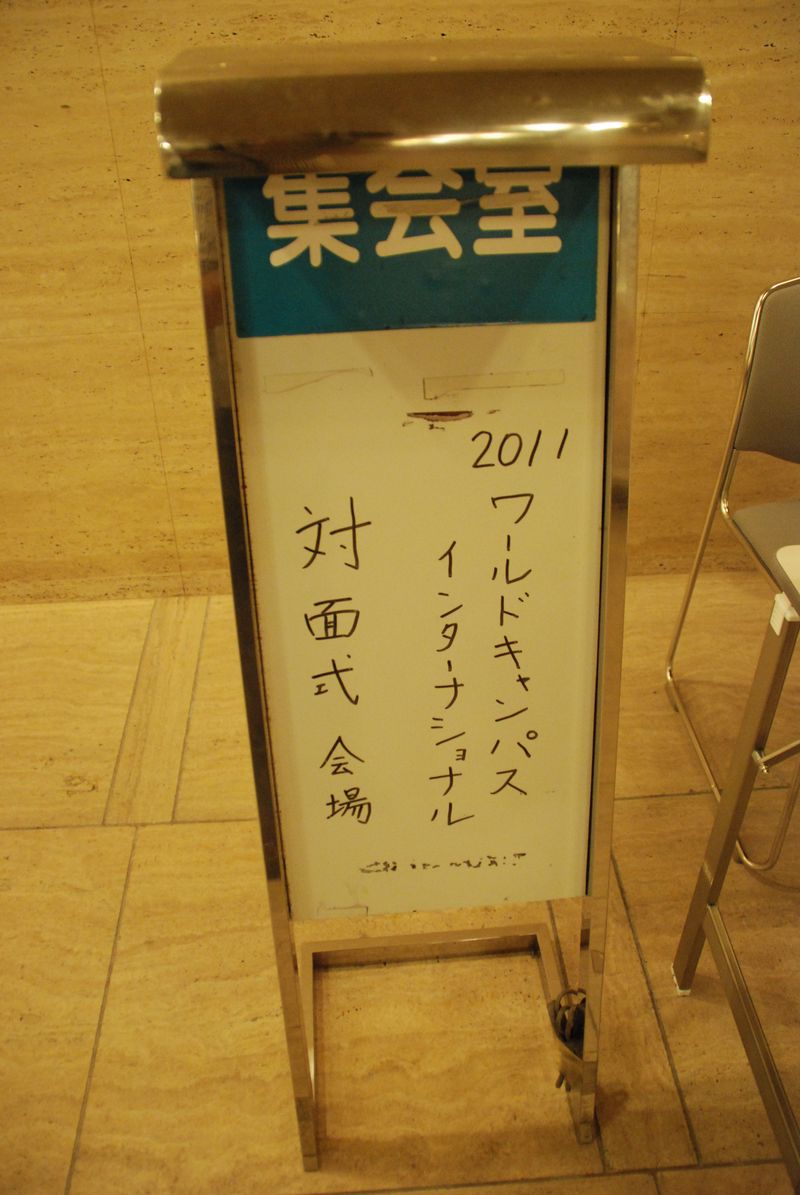 集会室
2011
ワールドキャンパス
インターナショナル
対面式 会場